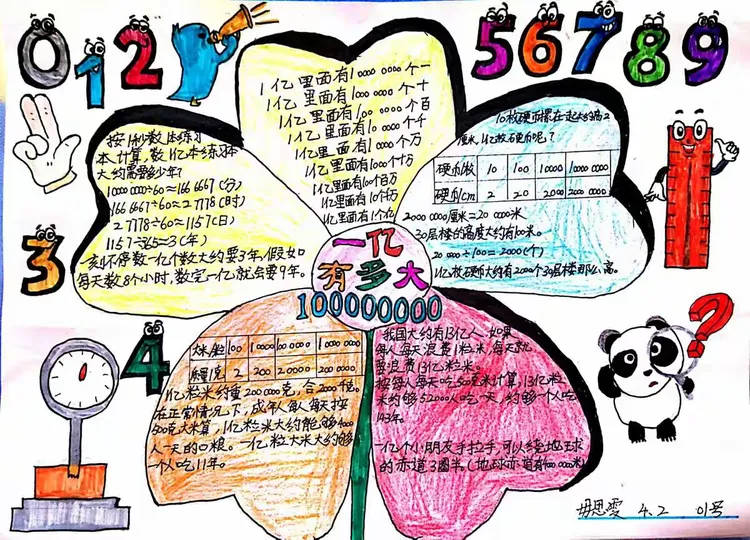 0
1
2
3
4
5
6
7
8
9
1亿里面有100000000个一
1亿里面有10000000个十
1亿里面有1000000个百
1亿里面有100000个千
1亿里面有10000个万
1亿里面有1000个十万
1亿里面有100个百万
1亿里面有10个千万
1亿里面有1个亿
本计算,数1亿本练习本
大约需要多少年?
100000000÷60≈1666667(分)
1666667÷60≈27778(时)
27778÷60≈1157(日)
1157÷365≈3(年)
刻不停数一亿个数大约要3年,假如
每天数8个小时,数完一亿就会要9年。
10枚硬币摞在起大约高2
厘米,1亿枚硬币呢?
硬币/枚 10 100 10000 100000000
硬币/cm 2 20 2000 20000000
20000000厘米=200000米
30层楼的高度大约有100米。
200000÷100=2000(个)
1亿枚硬币大约有2000个30层楼那么高。
一亿
有多大
100000000
大米/粒 100 10000 1000000 100000000
质量/克 2 200 20000 2000000
1亿粒米约重2000000克,合2000千克。
在正常情况下,成年人每人每天按
500克大米算,1亿粒米大约能够4000
人一天的口粮。一亿粒大米大约够
一个人吃11年。
我国大约有13亿人,如果
每人每天浪费1粒米,每天就
要浪费13亿粒米。
按每人每天吃500克米计算,13亿粒
米约够52000人吃一天,约够一个人吃
143年。
一亿个小朋友手拉手,可以绕地球
的赤道3圈半。(地球赤道有40000000米)
?
毋思雯 4.2 01号